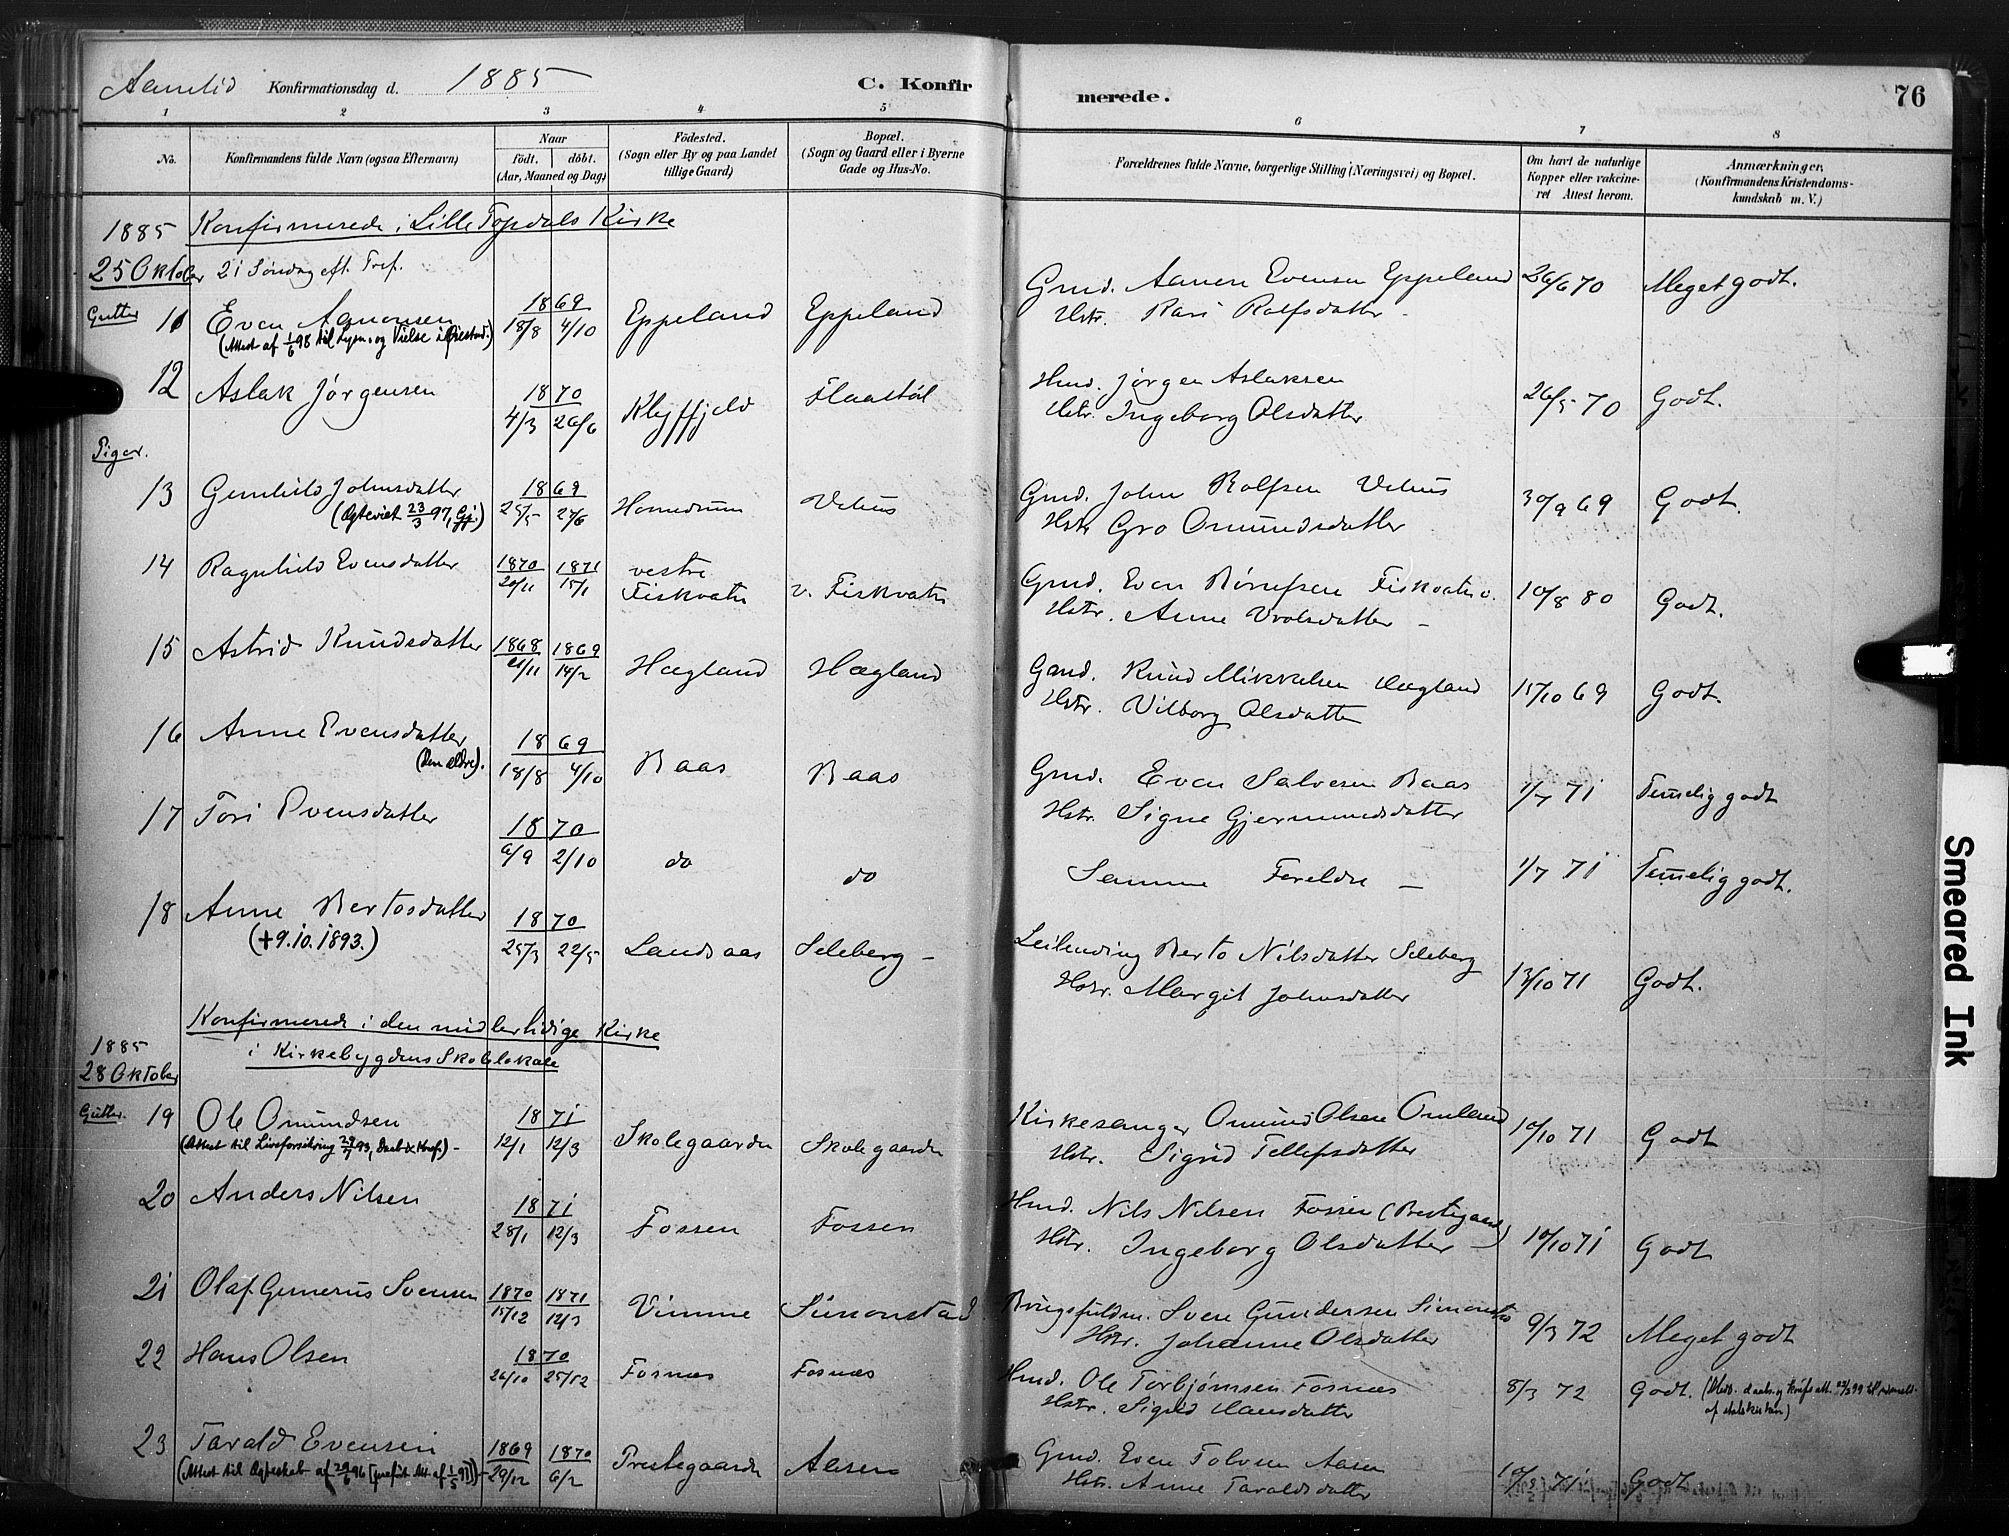 Aamlid Konfirmationsdag d. 1885
C. Konfirmerede.
76
1 2 3 4 5 6 7 8
No.
Konfirmandens fulde Navn (ogsaa Efternavn)
Naar
födt. döbt.
(Aar, Maaned og Dag)
Födested.
(Sogn eller By og paa Landet
tillige Gaard)
Bopæl.
(Sogn og Gaard eller i Byerne
Gade og Hus-No.
Forældrenes fulde Navne, borgerlige Stilling (Næringsvei) og Bopæl.
Om havt de naturlige
Kopper eller vakcine-
ret Attest herom.
Anmærkninger.
(Konfirmandens Kristendoms-
kundskab m. V.)
1885 Konfirmerede i Lille Topdals Kirke
25 Oktober 21 Søndag eft. Tref.
Gutter
11 Even Aanensen 1869 18/8 4/10 Eppeland Eppeland Gmd. Aanen Evensen Eppeland 26/6 70 Meget godt.
(Attest af 1/6 98 til Lysn. og Vielse i Øiestad.) Hstr. Kari Rolfsdatter -
12 Aslak Jørgensen 1870 4/3 26/6 Kleyffjeld Flaastøl Hmd. Jørgen Aslaksen 26/5 70 Godt.
Hstr. Ingeborg Olsdatter
Piger.
13 Gunhild Johnsdatter 1869 25/5 27/6 Homdrum Vehus Gmd. John Rolfsen Vehus 30/9 69 Godt.
(Ægteviet 23/3 97, Gj.) Hstr Gro Omundsdatter
14 Ragnhild Evensdatter 1870 20/11 1871 15/1 vestre Fiskvatn v. Fiskvatn Gmd. Even Fiskvatn v. 10/8 80 Godt.
Hstr. Anne Vrolsdatter -
15 Astrid Knudsdatter 1868 21/11 1869 14/2 Hægland Hægland Gmd. Knud Mikkelsen Hægland 15/10 69 Godt.
Hstr. Vilborg Olsdatter
16 Anne Evensdatter 1869 18/8 4/10 Baas Baas Gmd. Even Salvesen Baas 1/7 71 Temmelig godt
(den ældre). Hstr. Signe Gjermundsdatter
17 Tori Evensdatter 1870 6/9 2/10 do do Samme Foreldre - 1/7 71 Temmelig godt.
18 Anne Bertosdatter 1870 25/3 22/5 Landsaas Seleberg - Leilending Berto Nilsdatter Seleberg 13/10 71 Godt.
(+9.10.1893.) Hstr. Margit Johnsdatter
Konfirmerede i den midlertidige Kirke
i Kirkebygdens Skolelokale
1885
28 Oktober
Gutter.
19 Ole Omundsen 1871 12/1 12/3 Skolegaarden Skolegaarden Kirkesanger Omund Olsen Omland 10/10 71 Godt
(Attest til Livsforsikring 93, Daab & Konf.) - Hstr. Sigrid Tellefsdatter
20 Anders Nilsen 1871 28/1 12/3 Fossen Fossen Hmd. Nils Nilsen Fossen (Prestegaard) 10/10 71 Godt
Hstr. Ingeborg Olsdatter -
21 Olaf Gunerius Svensen 1870 15/12 1871 12/3 Vimme Simonstad Brugsfuldm. Sven Gundersen Simonstad 9/3 72 Meget godt
Hstr. Johanne Olsdatter
22 Hans Olsen 1870 26/10 25/12 Fosnæs Fosnæs Hmd. Ole Torbjørnsen Fosnæs 8/3 72 Godt.
Hstr. Sigrid Hansdatter af statskirken)
23 Tarald Evensen 1869 29/12 1870 6/2 Prestegaarden Aasen Gmd. Even Tolvsen Aasen 71 Godt
(Attest til Ægteskab af 96 Hstr. Anne Taraldsdatter
Smeared Ink